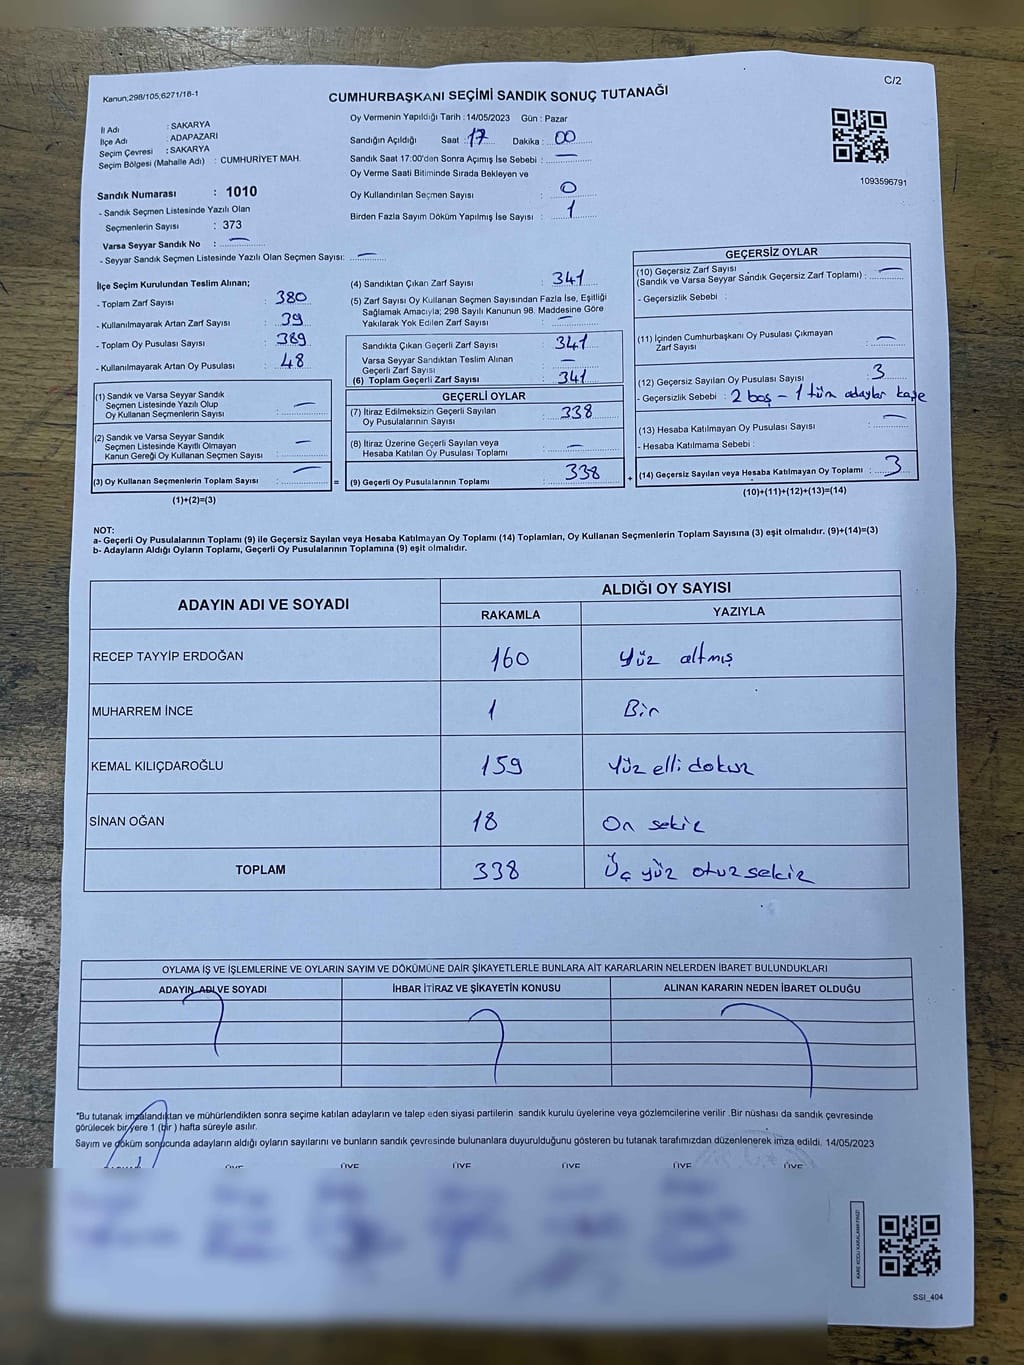 Kanun;298/105,6271/18-1
CUMHURBAŞKANI SEÇİMİ SANDIK SONUÇ TUTANAĞI
C/2
İl Adı : SAKARYA
İlçe Adı : ADAPAZARI
Seçim Çevresi : SAKARYA
Seçim Bölgesi (Mahalle Adı) : CUMHURİYET MAH.
Sandık Numarası : 1010
- Sandık Seçmen Listesinde Yazılı Olan
Seçmenlerin Sayısı : 373
Varsa Seyyar Sandık No : —
- Seyyar Sandık Seçmen Listesinde Yazılı Olan Seçmen Sayısı: —
Oy Vermenin Yapıldığı Tarih : 14/05/2023 Gün : Pazar
Sandığın Açıldığı Saat : 17 Dakika : 00
Sandık Saat 17:00'den Sonra Açımış İse Sebebi : —
Oy Verme Saati Bitiminde Sırada Bekleyen ve
Oy Kullandırılan Seçmen Sayısı : 0
Birden Fazla Sayım Döküm Yapılmış İse Sayısı : 1
1093596791
İlçe Seçim Kurulundan Teslim Alınan;
- Toplam Zarf Sayısı : 380
- Kullanılmayarak Artan Zarf Sayısı : 39
- Toplam Oy Pusulası Sayısı : 389
- Kullanılmayarak Artan Oy Pusulası : 48
(1) Sandık ve Varsa Seyyar Sandık
Seçmen Listesinde Yazılı Olup
Oy Kullanan Seçmenlerin Sayısı : —
(2) Sandık ve Varsa Seyyar Sandık
Seçmen Listesinde Kayıtlı Olmayan
Kanun Gereği Oy Kullanan Seçmen Sayısı : —
(3) Oy Kullanan Seçmenlerin Toplam Sayısı : —
(1)+(2)=(3)
=
(4) Sandıktan Çıkan Zarf Sayısı : 341
(5) Zarf Sayısı Oy Kullanan Seçmen Sayısından Fazla İse, Eşitliği
Sağlamak Amacıyla; 298 Sayılı Kanunun 98. Maddesine Göre
Yakılarak Yok Edilen Zarf Sayısı : —
Sandıkta Çıkan Geçerli Zarf Sayısı : 341
Varsa Seyyar Sandıktan Teslim Alınan
Geçerli Zarf Sayısı : —
(6) Toplam Geçerli Zarf Sayısı : 341
GEÇERLİ OYLAR
(7) İtiraz Edilmeksizin Geçerli Sayılan
Oy Pusulalarının Sayısı : 338
(8) İtiraz Üzerine Geçerli Sayılan veya
Hesaba Katılan Oy Pusulası Toplamı : —
(9) Geçerli Oy Pusulalarının Toplamı : 338
+
GEÇERSİZ OYLAR
(10) Geçersiz Zarf Sayısı
(Sandık ve Varsa Seyyar Sandık Geçersiz Zarf Toplamı) : —
- Geçersizlik Sebebi :
(11) İçinden Cumhurbaşkanı Oy Pusulası Çıkmayan
Zarf Sayısı : —
(12) Geçersiz Sayılan Oy Pusulası Sayısı : 3
- Geçersizlik Sebebi : 2 boş – 1 tüm adaylar kaşe
(13) Hesaba Katılmayan Oy Pusulası Sayısı : —
- Hesaba Katılmama Sebebi :
(14) Geçersiz Sayılan veya Hesaba Katılmayan Oy Toplamı : 3
(10)+(11)+(12)+(13)=(14)
NOT:
a- Geçerli Oy Pusulalarının Toplamı (9) ile Geçersiz Sayılan veya Hesaba Katılmayan Oy Toplamı (14) Toplamları, Oy Kullanan Seçmenlerin Toplam Sayısına (3) eşit olmalıdır. (9)+(14)=(3)
b- Adayların Aldığı Oyların Toplamı, Geçerli Oy Pusulalarının Toplamına (9) eşit olmalıdır.
ADAYIN ADI VE SOYADI
ALDIĞI OY SAYISI
RAKAMLA YAZIYLA
RECEP TAYYİP ERDOĞAN 160 Yüz altmış
MUHARREM İNCE 1 Bir
KEMAL KILIÇDAROĞLU 159 Yüz elli dokuz
SİNAN OĞAN 18 On sekiz
TOPLAM 338 Üç yüz otuz sekiz
OYLAMA İŞ VE İŞLEMLERİNE VE OYLARIN SAYIM VE DÖKÜMÜNE DAİR ŞİKAYETLERLE BUNLARA AİT KARARLARIN NELERDEN İBARET BULUNDUKLARI
ADAYIN ADI VE SOYADI İHBAR İTİRAZ VE ŞİKAYETİN KONUSU ALINAN KARARIN NEDEN İBARET OLDUĞU
"Bu tutanak imzalandıktan ve mühürlendikten sonra seçime katılan adayların ve talep eden siyasi partilerin sandık kurulu üyelerine veya gözlemcilerine verilir .Bir nüshası da sandık çevresinde
görülecek bir yere 1 (bir ) hafta süreyle asılır.
Sayım ve döküm sonucunda adayların aldığı oyların sayılarını ve bunların sandık çevresinde bulunanlara duyurulduğunu gösteren bu tutanak tarafımızdan düzenlenerek imza edildi. 14/05/2023
ÜYE ÜYE ÜYE ÜYE ÜYE ÜYE
KARE KODU KARALAMAYINIZ!
SSI_404